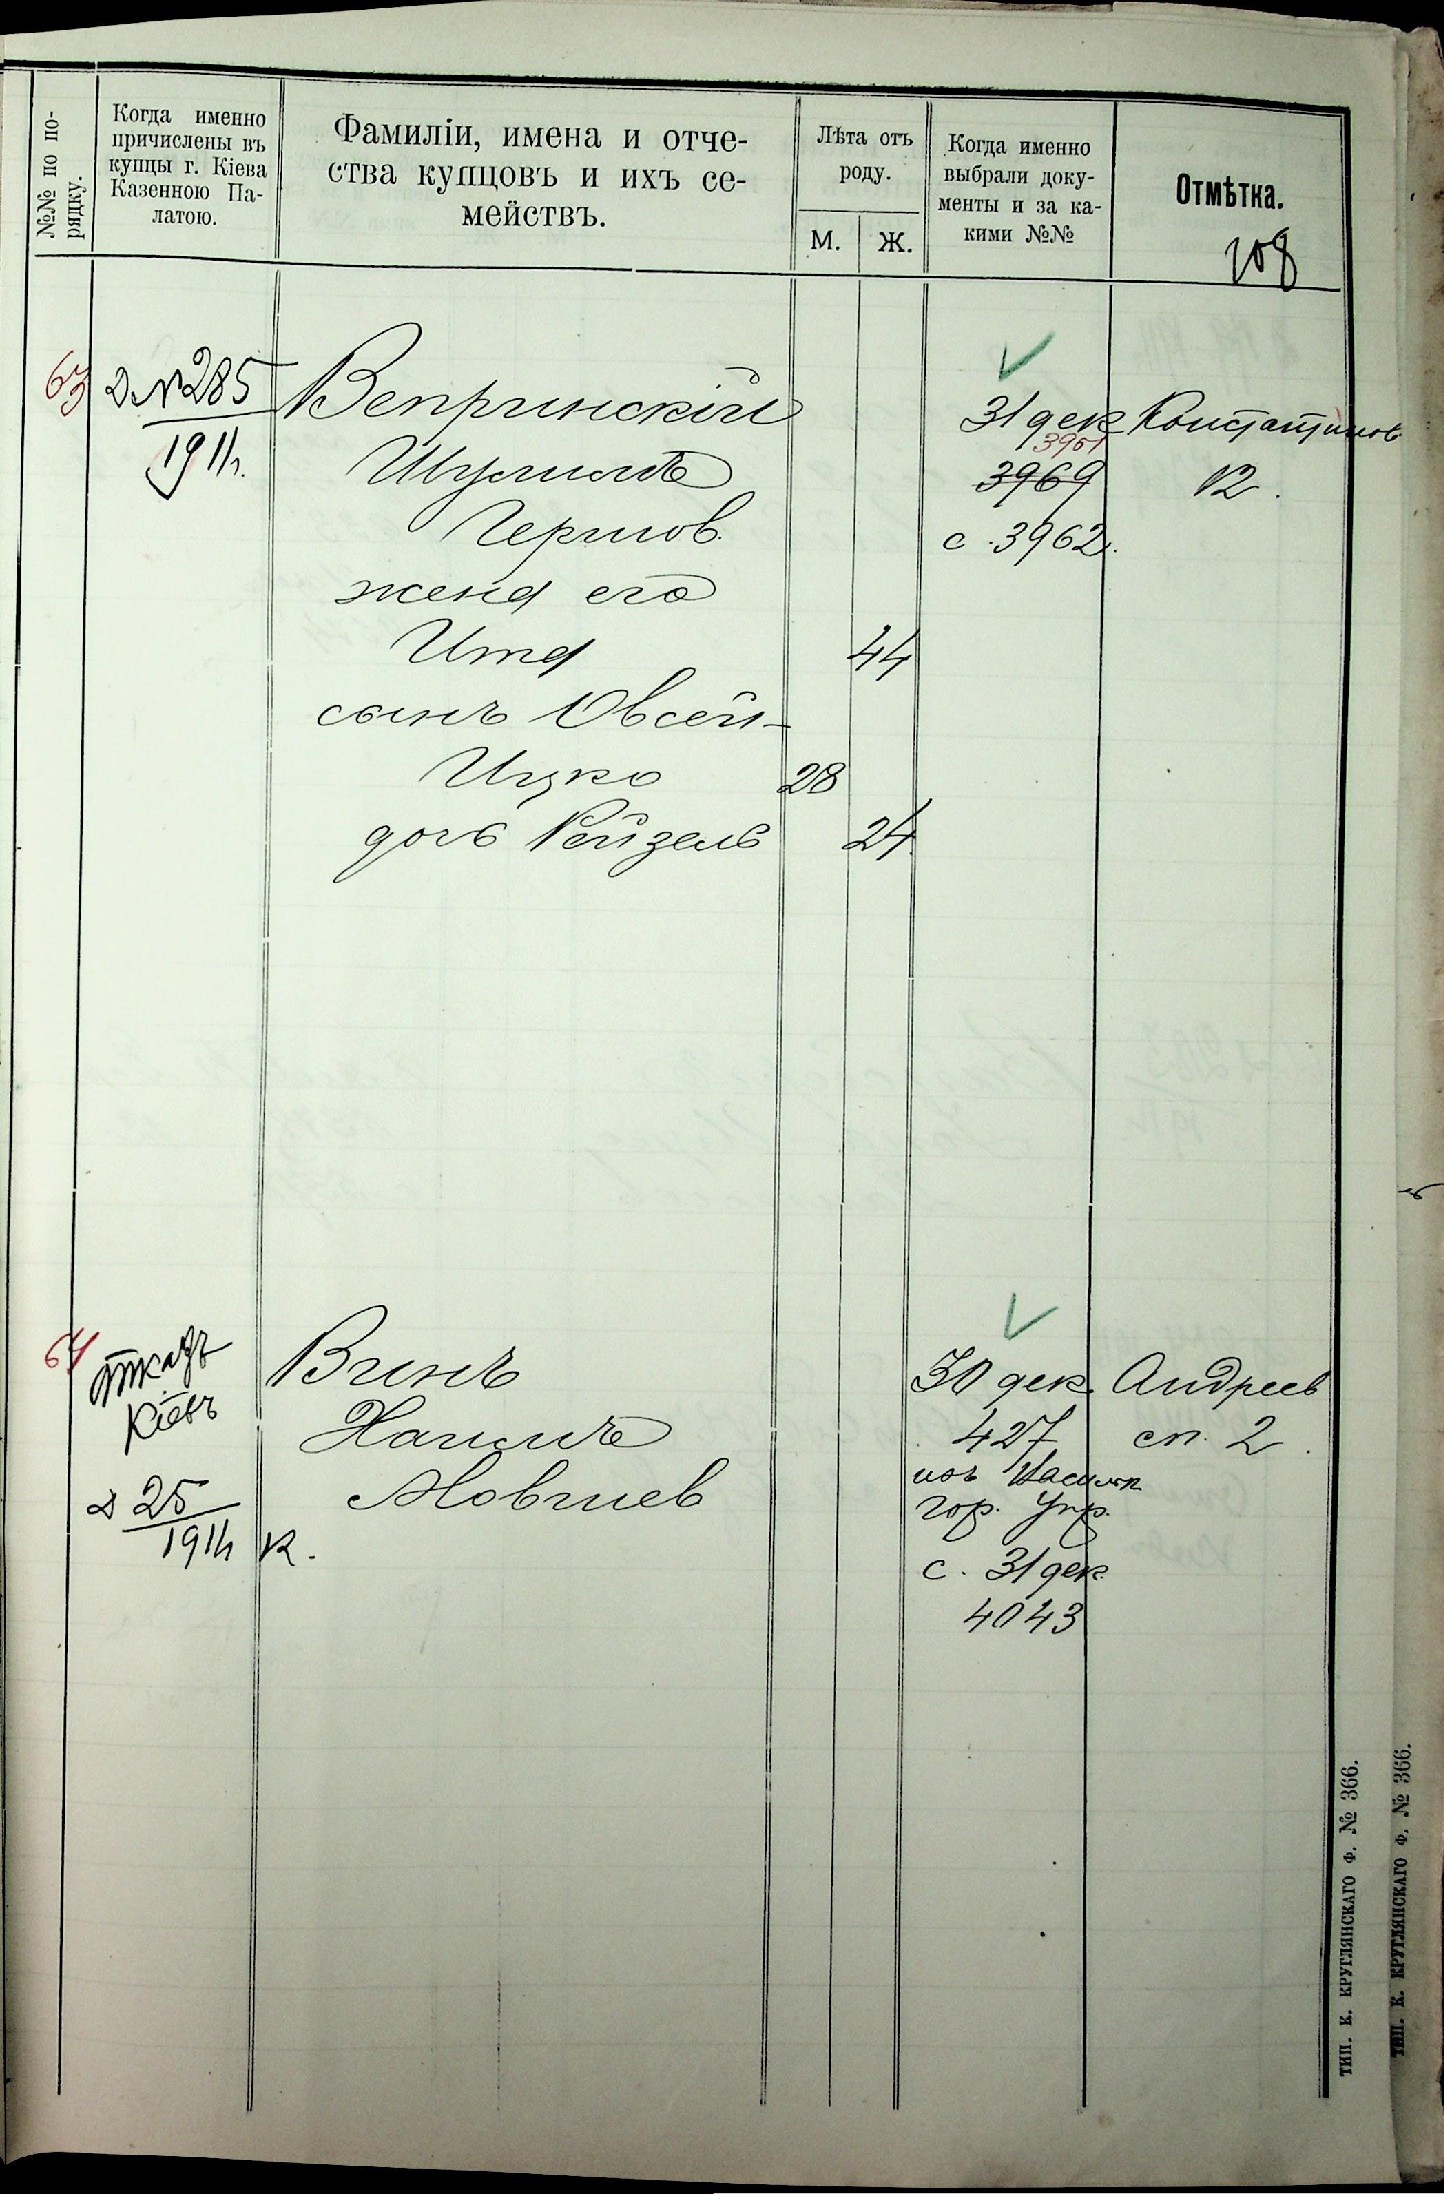 №№ по по-
рядку.
Когда именно
причислены въ
купцы г. Кіева
Казенною Па-
латою.
Фамиліи, имена и отче-
ства купцовъ и ихъ се-
мействъ.
Лѣта отъ
роду.
М.
Ж.
Когда именно
выбрали доку-
менты и за ка-
кими №№
Отмѣтка.
108
63
Д №285
1911г.
Вепринскій
Шулимъ
Гершов.
жена его
Ита
44
сынъ Овсей-
Ицко
28
дочь Рейзель
24
31 дек
3961
3969
с. 3962.
Константинов
12.
64
отказъ
Кіевъ
Д 25
1911г
Винъ
Хаимъ
Мовшев
к.
30 дек.
427
изъ Васильк
гор. Упр.
с. 31 дек.
4043
Андреев
сп. 2.
ТИП. К. КРУГЛЯНСКАГО Ф. № 366.
ТИП. К. КРУГЛЯНСКАГО Ф. № 366.